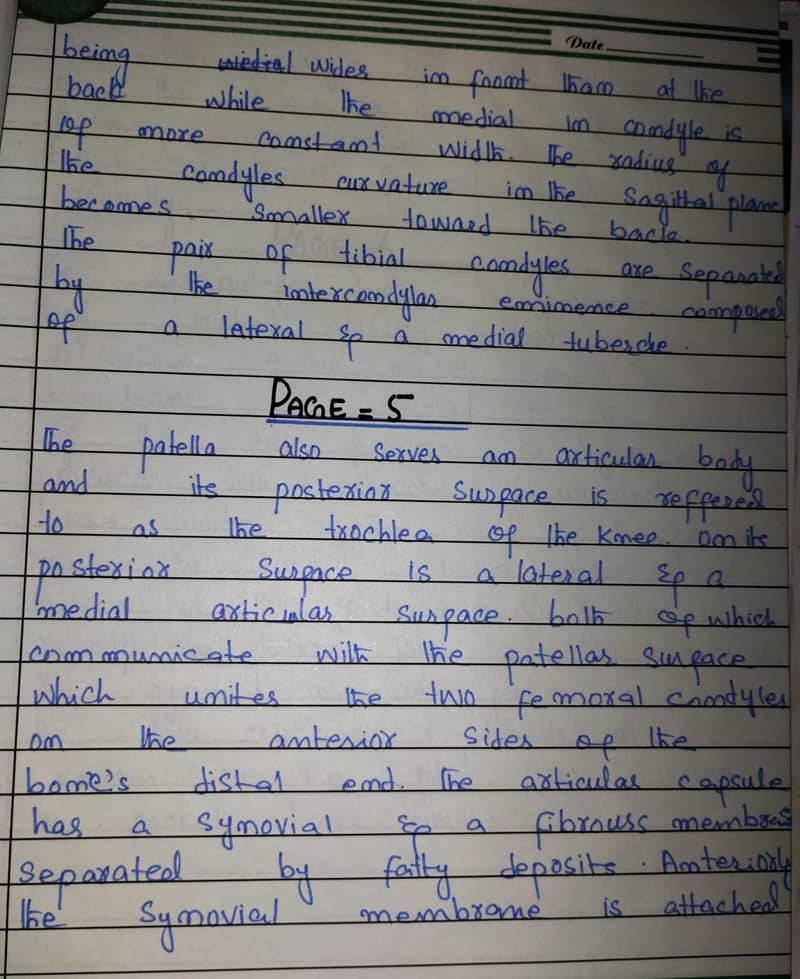 Date
being medial wider in front than at the
back while the medial in condyle is
of more constant width. The radius of
the condyles curvature in the Sagittal plane
becomes Smaller toward the back.
The pair of tibial condyles are Separated
by the intercondylar eminence composed
of a lateral & a medial tubercle.
PAGE = 5
The patella also Serves an articular body
and its posterior Surface is reffered
to as the trochlea of the Knee. on its
posterior Surface is a lateral & a
medial articular surface. both of which
communicate with the patellar Surface
which unites the two femoral condyles
on the anterior Sides of the
bone's distal end. The articular capsule
has a Synovial & a fibrouss membrane
Separated by fatty deposits. Anteriorly
the Synovial membrane is attached